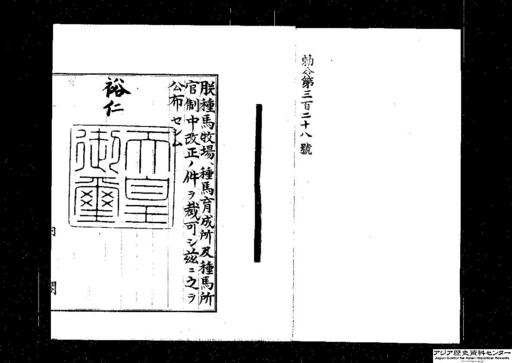 勅令第三百二十八號
朕種馬牧場、種馬育成所及種馬所
官制中改正ノ件ヲ裁可シ茲ニ之ヲ
公布セシム
裕仁
天皇
御璽
内閣
アジア歴史資料センター
Japan Center for Asian Historical Records